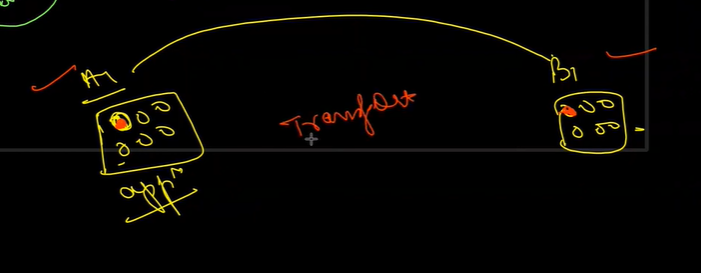 A1
B1
Transfer
appⁿ